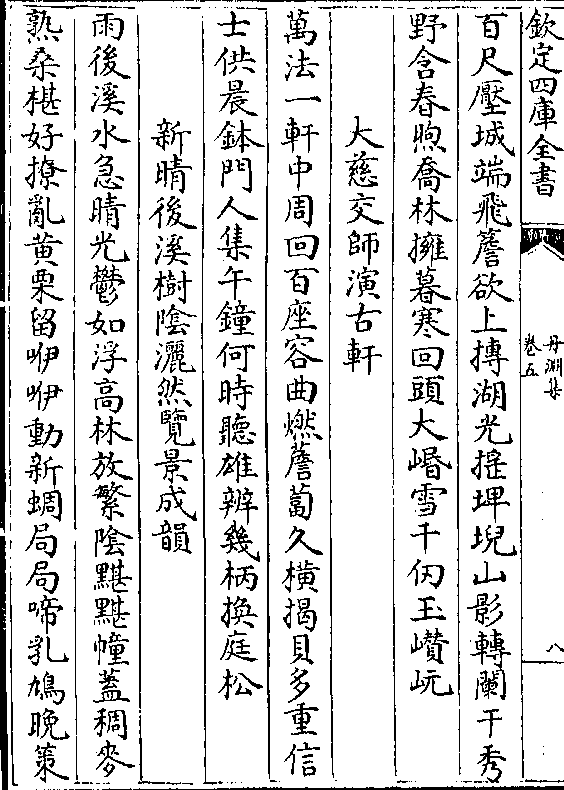 欽定四庫全書
丹淵集
卷五
八
百尺壓城端飛簷欲上摶湖光揺埤堄山影轉闌干秀
野含春煦喬林擁暮寒回頭大㟭雪千仞玉巑岏
大慈交師演古軒
萬法一軒中周回百座容曲燃薝蔔久横揭貝多重信
士供晨鉢門人集午鐘何時聽雄辨幾柄換庭松
新晴後溪樹陰灑然覽景成韻
雨後溪水急晴光鬱如浮高林放繁陰黮黮幢蓋稠麥
熟桑椹好撩亂黄栗留咿咿動新蜩局局啼乳鳩晚策